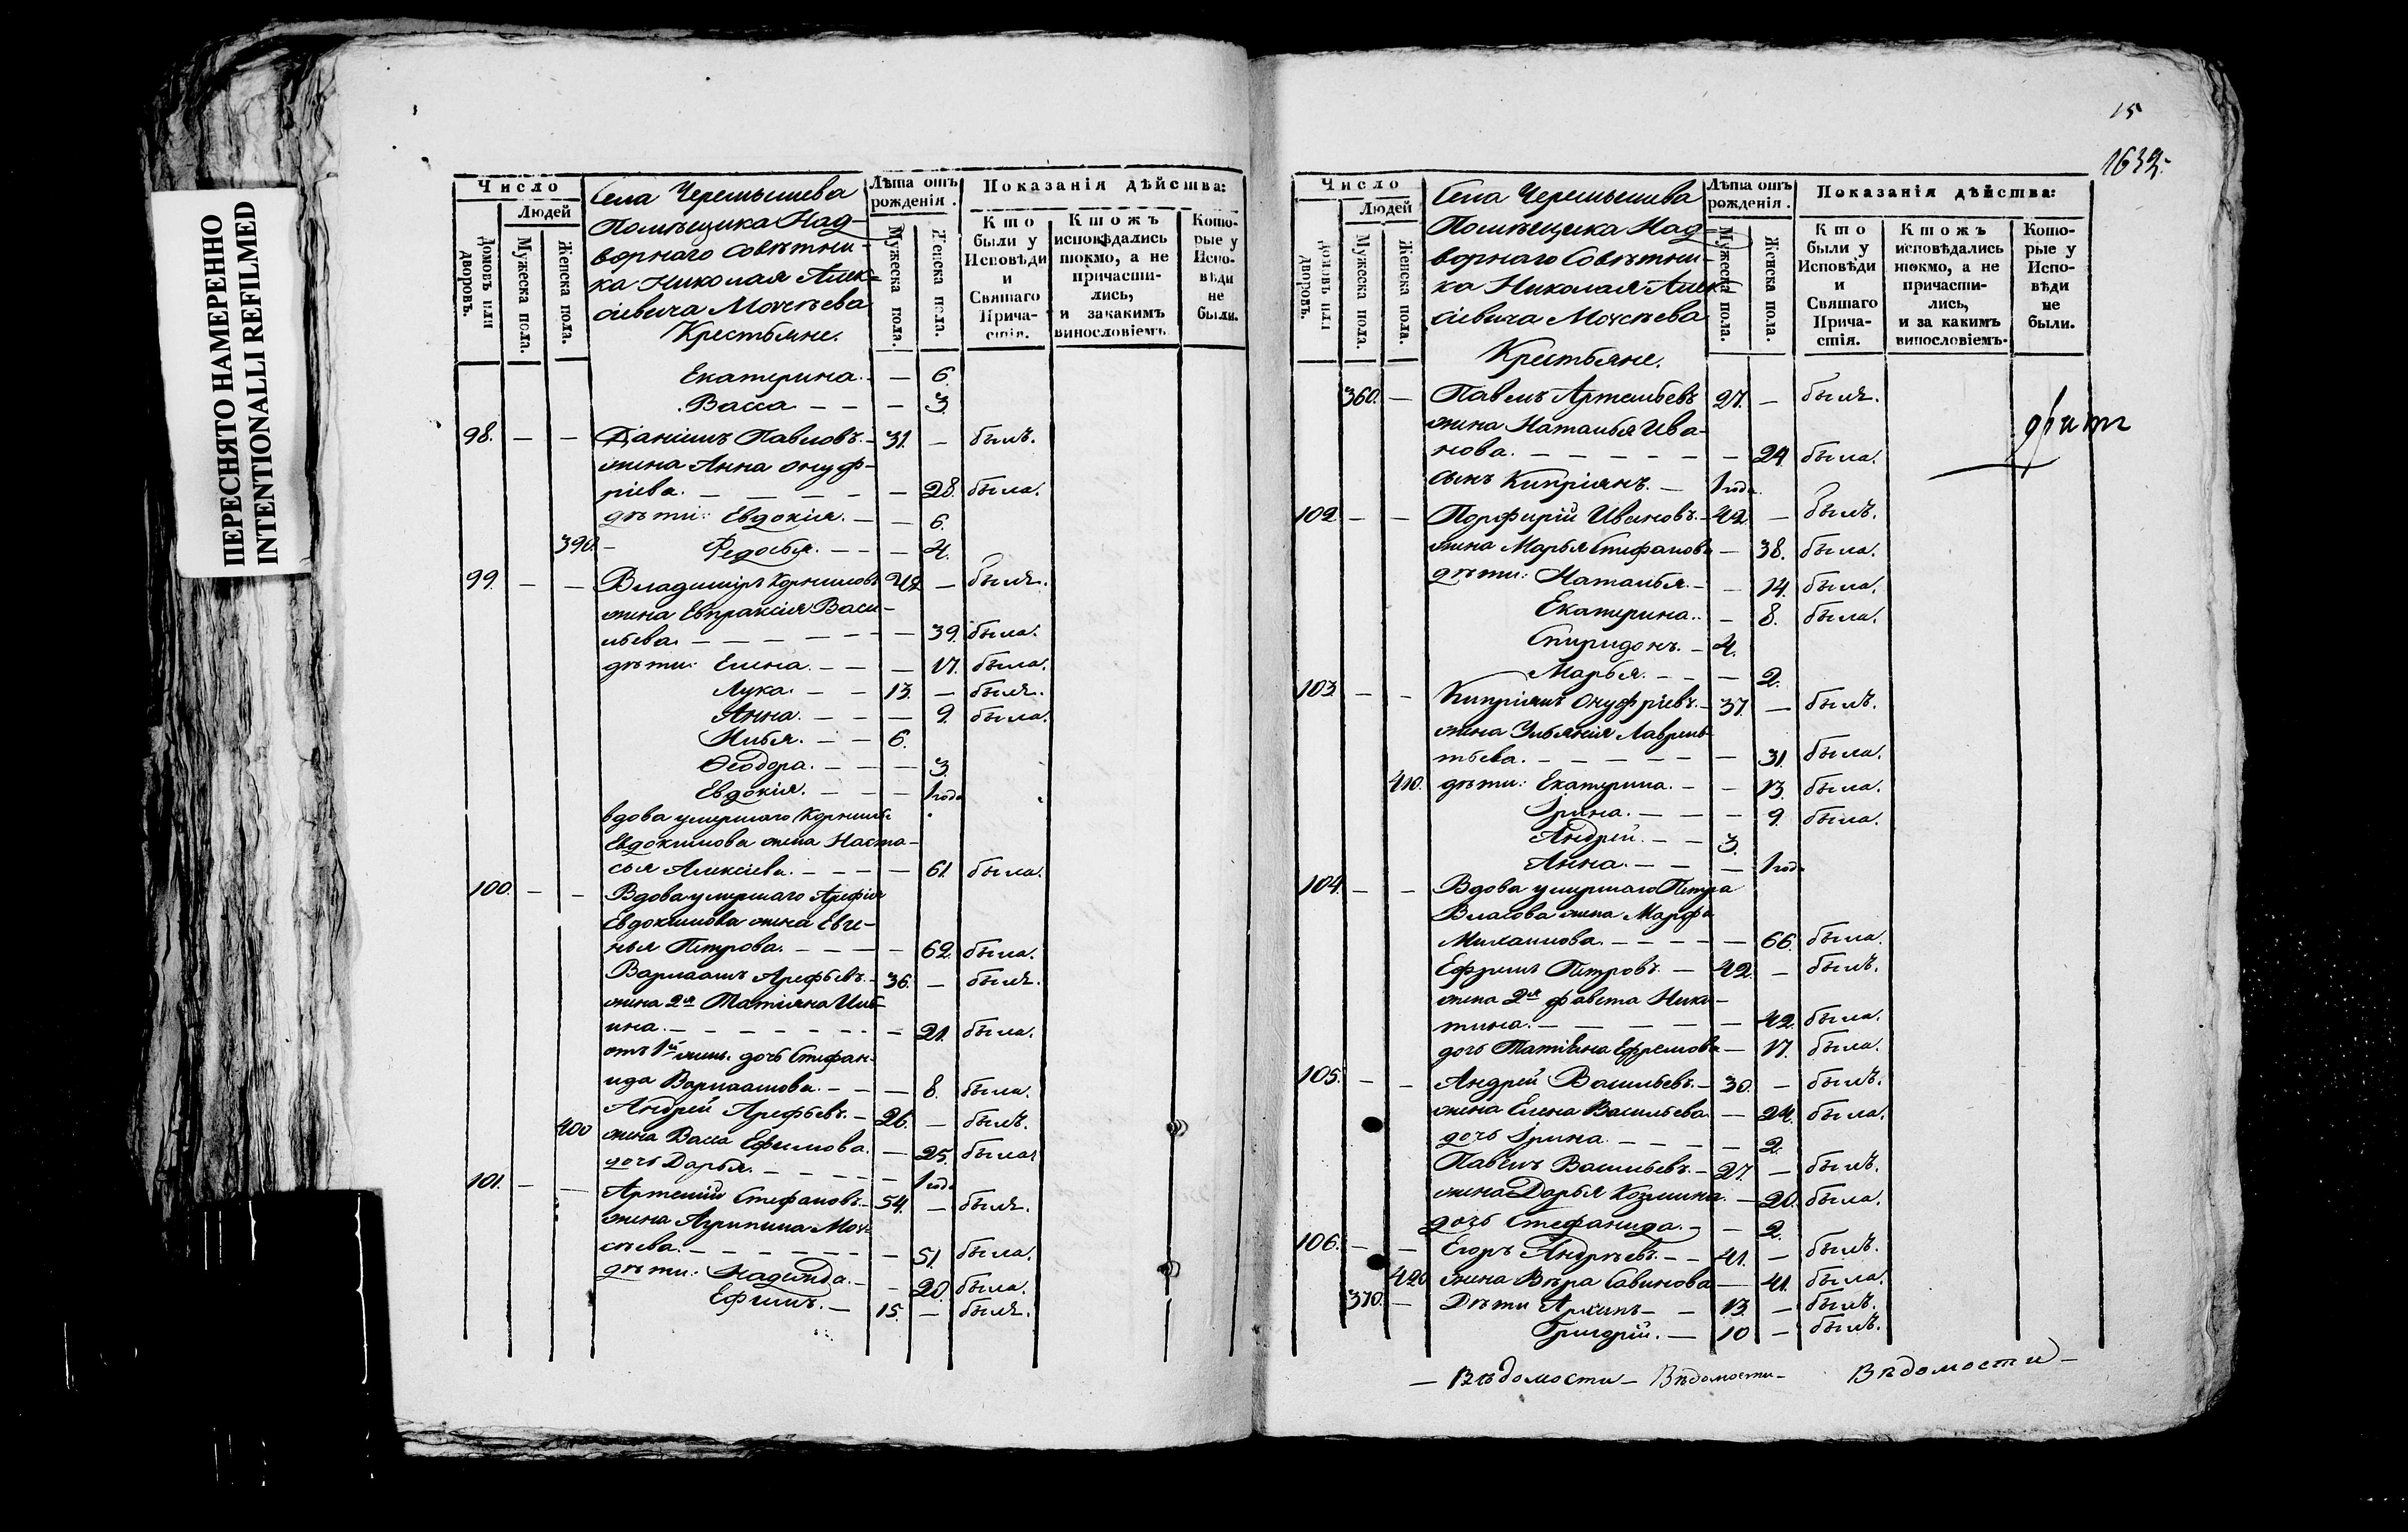 ПЕРЕСНЯТО НАМЕРЕННО
INTENTIONALLI REFILMED
Число
Людей
Домовъ или дворовъ.
Мужеска пола.
Женска пола.
Села Черемышева
Помѣщика Над-
ворнаго Совѣтни-
ка Николая Алек-
сіевича Мочсѣева
Крестьяне.
Лѣта отъ рожденія.
Мужеска пола.
Женска пола.
Показанія дѣйства:
Кто были у Исповѣди и Святаго Прича-стія.
Ктожъ исповѣдались токмо, а не причасти-лись, и закакимъ винословіемъ.
Кото-рые у Испо-вѣди не были.
Екатерина. — 6.
Васса — — — 3.
98. — — Даніилъ Павловъ. — 31. — былъ.
жена Анна Онуф-
ріева. — — — — — 28. была.
дѣти: Евдокія. — — 6.
390. — Федосья. — — — 4.
99. — — Владиміръ Корниловъ 42 — былъ.
жена Евпраксія Васи-
льева. — — — — — 39. была.
дѣти: Елена. — — — 17. была.
Лука. — — 13. — былъ.
Анна. — — — 9. была.
Илья. — — 6.
Ѳеодора. — — — 3.
Евдокія. — — — 1 года
вдова умершаго Корнилы
Евдокимова жена Наста-
сья Алексіева. — — — — 61. была.
100. — — Вдова умершаго Арефія
Евдокимова жена Евге-
нья Петрова. — — — — 62. была.
Варлаамъ Арефьевъ. — 36. — былъ.
жена 2я Татіяна Иль-
ина. — — — — — — 21. была.
отъ 1й жены дочь Стефан-
ида Варлаамова. — — — 8. была.
Андрей Арефьевъ. — 26. — былъ.
400 жена Васса Ефимова. — 25. была
дочь Дарья. — — — — 1 года
101. — — Артемій Стефановъ. — 54. — былъ.
жена Агрипина Мок-
сѣева. — — — — — — 51. была.
дѣти: Надежда. — — 20. была.
Ефимъ. — 15. — былъ.
15
1632.
Число
Людей
Домовъ или дворовъ.
Мужеска пола.
Женска пола.
Села Черемышева
Помѣщика Над-
ворнаго Совѣтни-
ка Николая Алек-
сіевича Мочсѣева
Крестьяне.
Лѣта отъ рожденія.
Мужеска пола.
Женска пола.
Показанія дѣйства:
Кто были у Исповѣди и Святаго Прича-стія.
Ктожъ исповѣдались токмо, а не причасти-лись, и за какимъ винословіемъ.
Кото-рые у Испо-вѣди не были.
360. — Павелъ Артемьевъ 27. — былъ.
жена Наталья Ива-
нова. — — — — — — 24. была.
сынъ Кипріянъ. — 1 года
102 — — Порфирій Ивановъ. — 42. — былъ.
жена Марья Стефанова — 38. была.
дѣти: Наталья. — — 14. была.
Екатерина. — 8. была.
Спиридонъ. — 4.
Марья. — — — 2.
103 — — Кипріянъ Онуфріевъ. — 37. — былъ.
жена Ульянія Лаврень-
тьева. — — — — — — 31. была.
410. дѣти: Екатерина. — — 13. была.
Ірина. — — — 9. была.
Андрей. — — 3.
Анна. — — — 1 год.
104. — — Вдова умершаго Петра
Власова жена Марфа
Михаилова. — — — — — 66. была.
Ефремъ Петровъ. — 42. — былъ.
жена 2я Фавста Ники-
тина. — — — — — — 42. была.
дочь Татіяна Ефремова — 17. была.
105. — — Андрей Васильевъ. — 30. — былъ.
жена Елена Васильева — 24. была.
дочь Ірина. — — — — 2.
Павелъ Васильевъ. — 27. — былъ.
жена Дарья Козмина. — 20. была.
дочь Стефанида. — — 2.
106. — — Егоръ Андрѣевъ. — — 41. — былъ.
420 жена Вѣра Савинова — 41. была.
370. — Дѣти Архипъ — — 13. — былъ.
Григорій. — 10 — былъ.
— Вѣдомости — Вѣдомости — Вѣдомости —